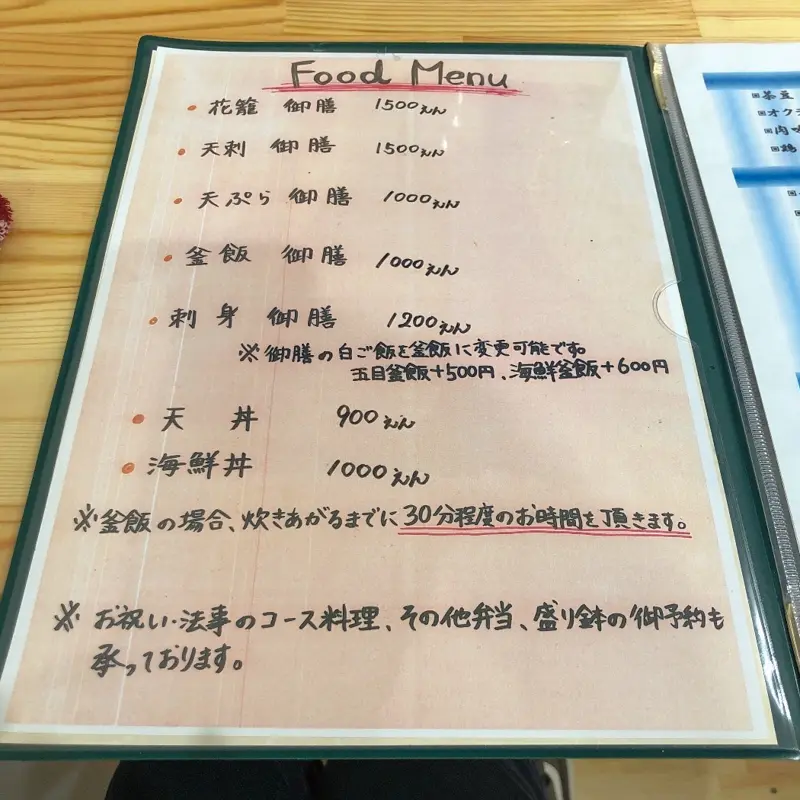 Food Menu
• 花籠 御膳 1500えん
• 天刺 御膳 1500えん
• 天ぷら 御膳 1000えん
• 釜飯 御膳 1000えん
• 刺身 御膳 1200えん
※御膳の白ご飯を釜飯に変更可能です。
五目釜飯+500円、海鮮釜飯+600円
• 天丼 900えん
• 海鮮丼 1000えん
※釜飯の場合、炊きあがるまでに30分程度のお時間を頂きます。
※ お祝い・法事のコース料理、その他弁当、盛り鉢の御予約も
承っております。
茶豆
オクラ